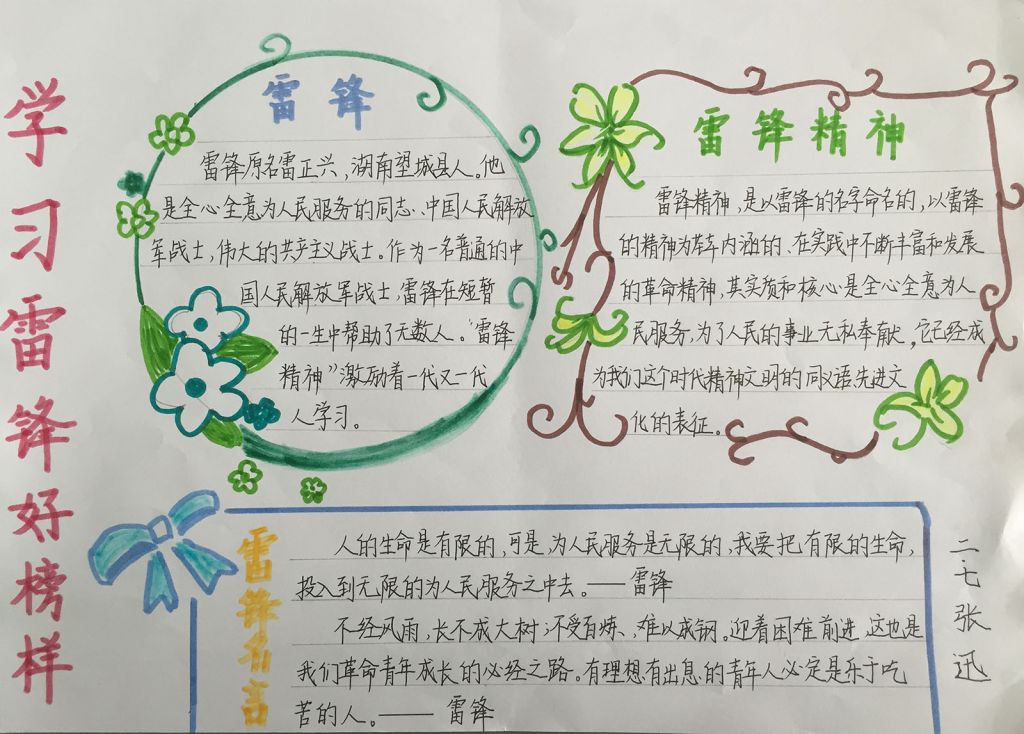 学习雷锋好榜样
雷锋
雷锋原名雷正兴，湖南望城县人。他
是全心全意为人民服务的同志、中国人民解放
军战士，伟大的共产主义战士。作为一名普通的中
国人民解放军战士，雷锋在短暂
的一生中帮助了无数人。“雷锋
精神”激励着一代又一代
人学习。
雷锋精神
雷锋精神，是以雷锋的名字命名的，以雷锋
的精神为基本内涵的、在实践中不断丰富和发展
的革命精神，其实质和核心是全心全意为人
民服务，为了人民的事业无私奉献。它已经成
为我们这个时代精神文明的同义语先进文
化的表征。
雷锋名言
人的生命是有限的，可是，为人民服务是无限的，我要把有限的生命，
投入到无限的为人民服务之中去。——雷锋
不经风雨，长不成大树；不受百炼、难以成钢。迎着困难前进，这也是
我们革命青年成长的必经之路。有理想有出息的青年人必定是乐于吃
苦的人。——雷锋
二.七张迅